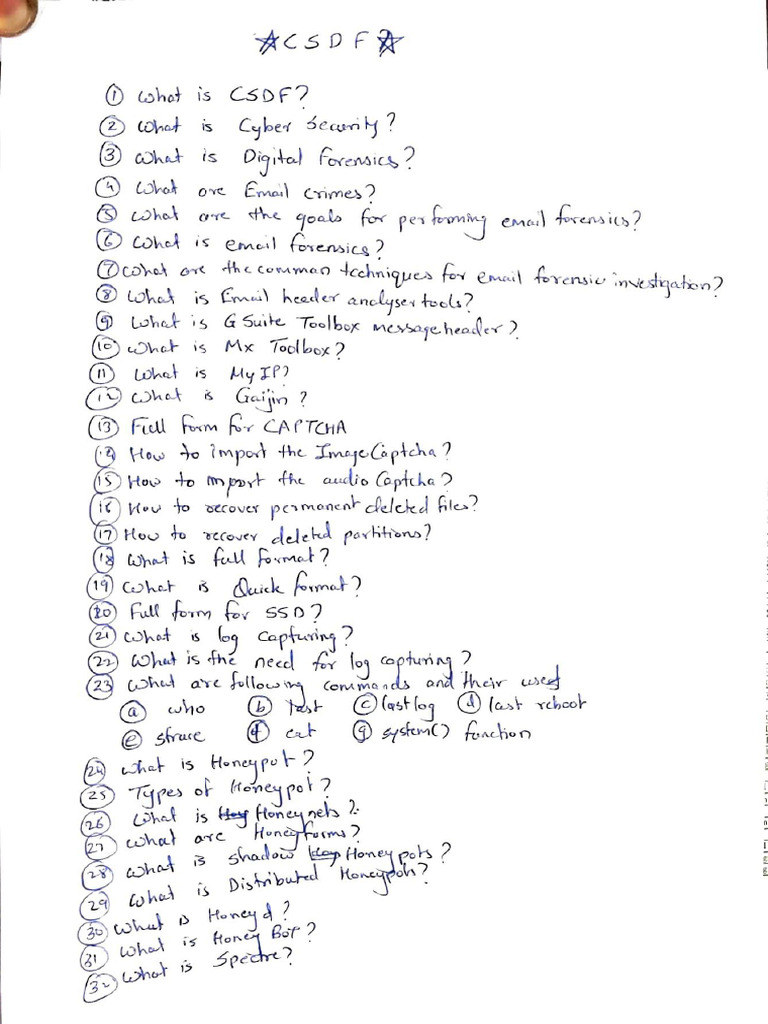 ☆ C S D F ☆
① What is CSDF?
② What is Cyber Security?
③ What is Digital Forensics?
④ What are Email crimes?
⑤ What are the goals for performing email forensics?
⑥ What is email forensics?
⑦ What are the common techniques for email forensic investigation?
⑧ What is Email header analyser tools?
⑨ What is G Suite Toolbox messageheader?
⑩ What is Mx Toolbox?
⑪ What is My IP?
⑫ What is Gaijin?
⑬ Full form for CAPTCHA
⑭ How to import the Image Captcha?
⑮ How to import the audio Captcha?
⑯ How to recover permanent deleted files?
⑰ How to recover deleted partitions?
⑱ What is full format?
⑲ What is Quick format?
⑳ Full form for SSD?
㉑ What is log capturing?
㉒ What is the need for log capturing?
㉓ What are following commands and their used
ⓐ who ⓑ last ⓒ lastlog ⓓ last reboot
ⓔ strace ⓕ cat ⓖ system() function
㉔ What is Honeypot?
㉕ Types of Honeypot?
㉖ What is Honeynets?
㉗ What are Honeyforms?
㉘ What is shadow Honeypots?
㉙ What is Distributed Honeypoh?
㉚ What is Honeyd?
㉛ What is Honey Bot?
㉜ What is Spectre?